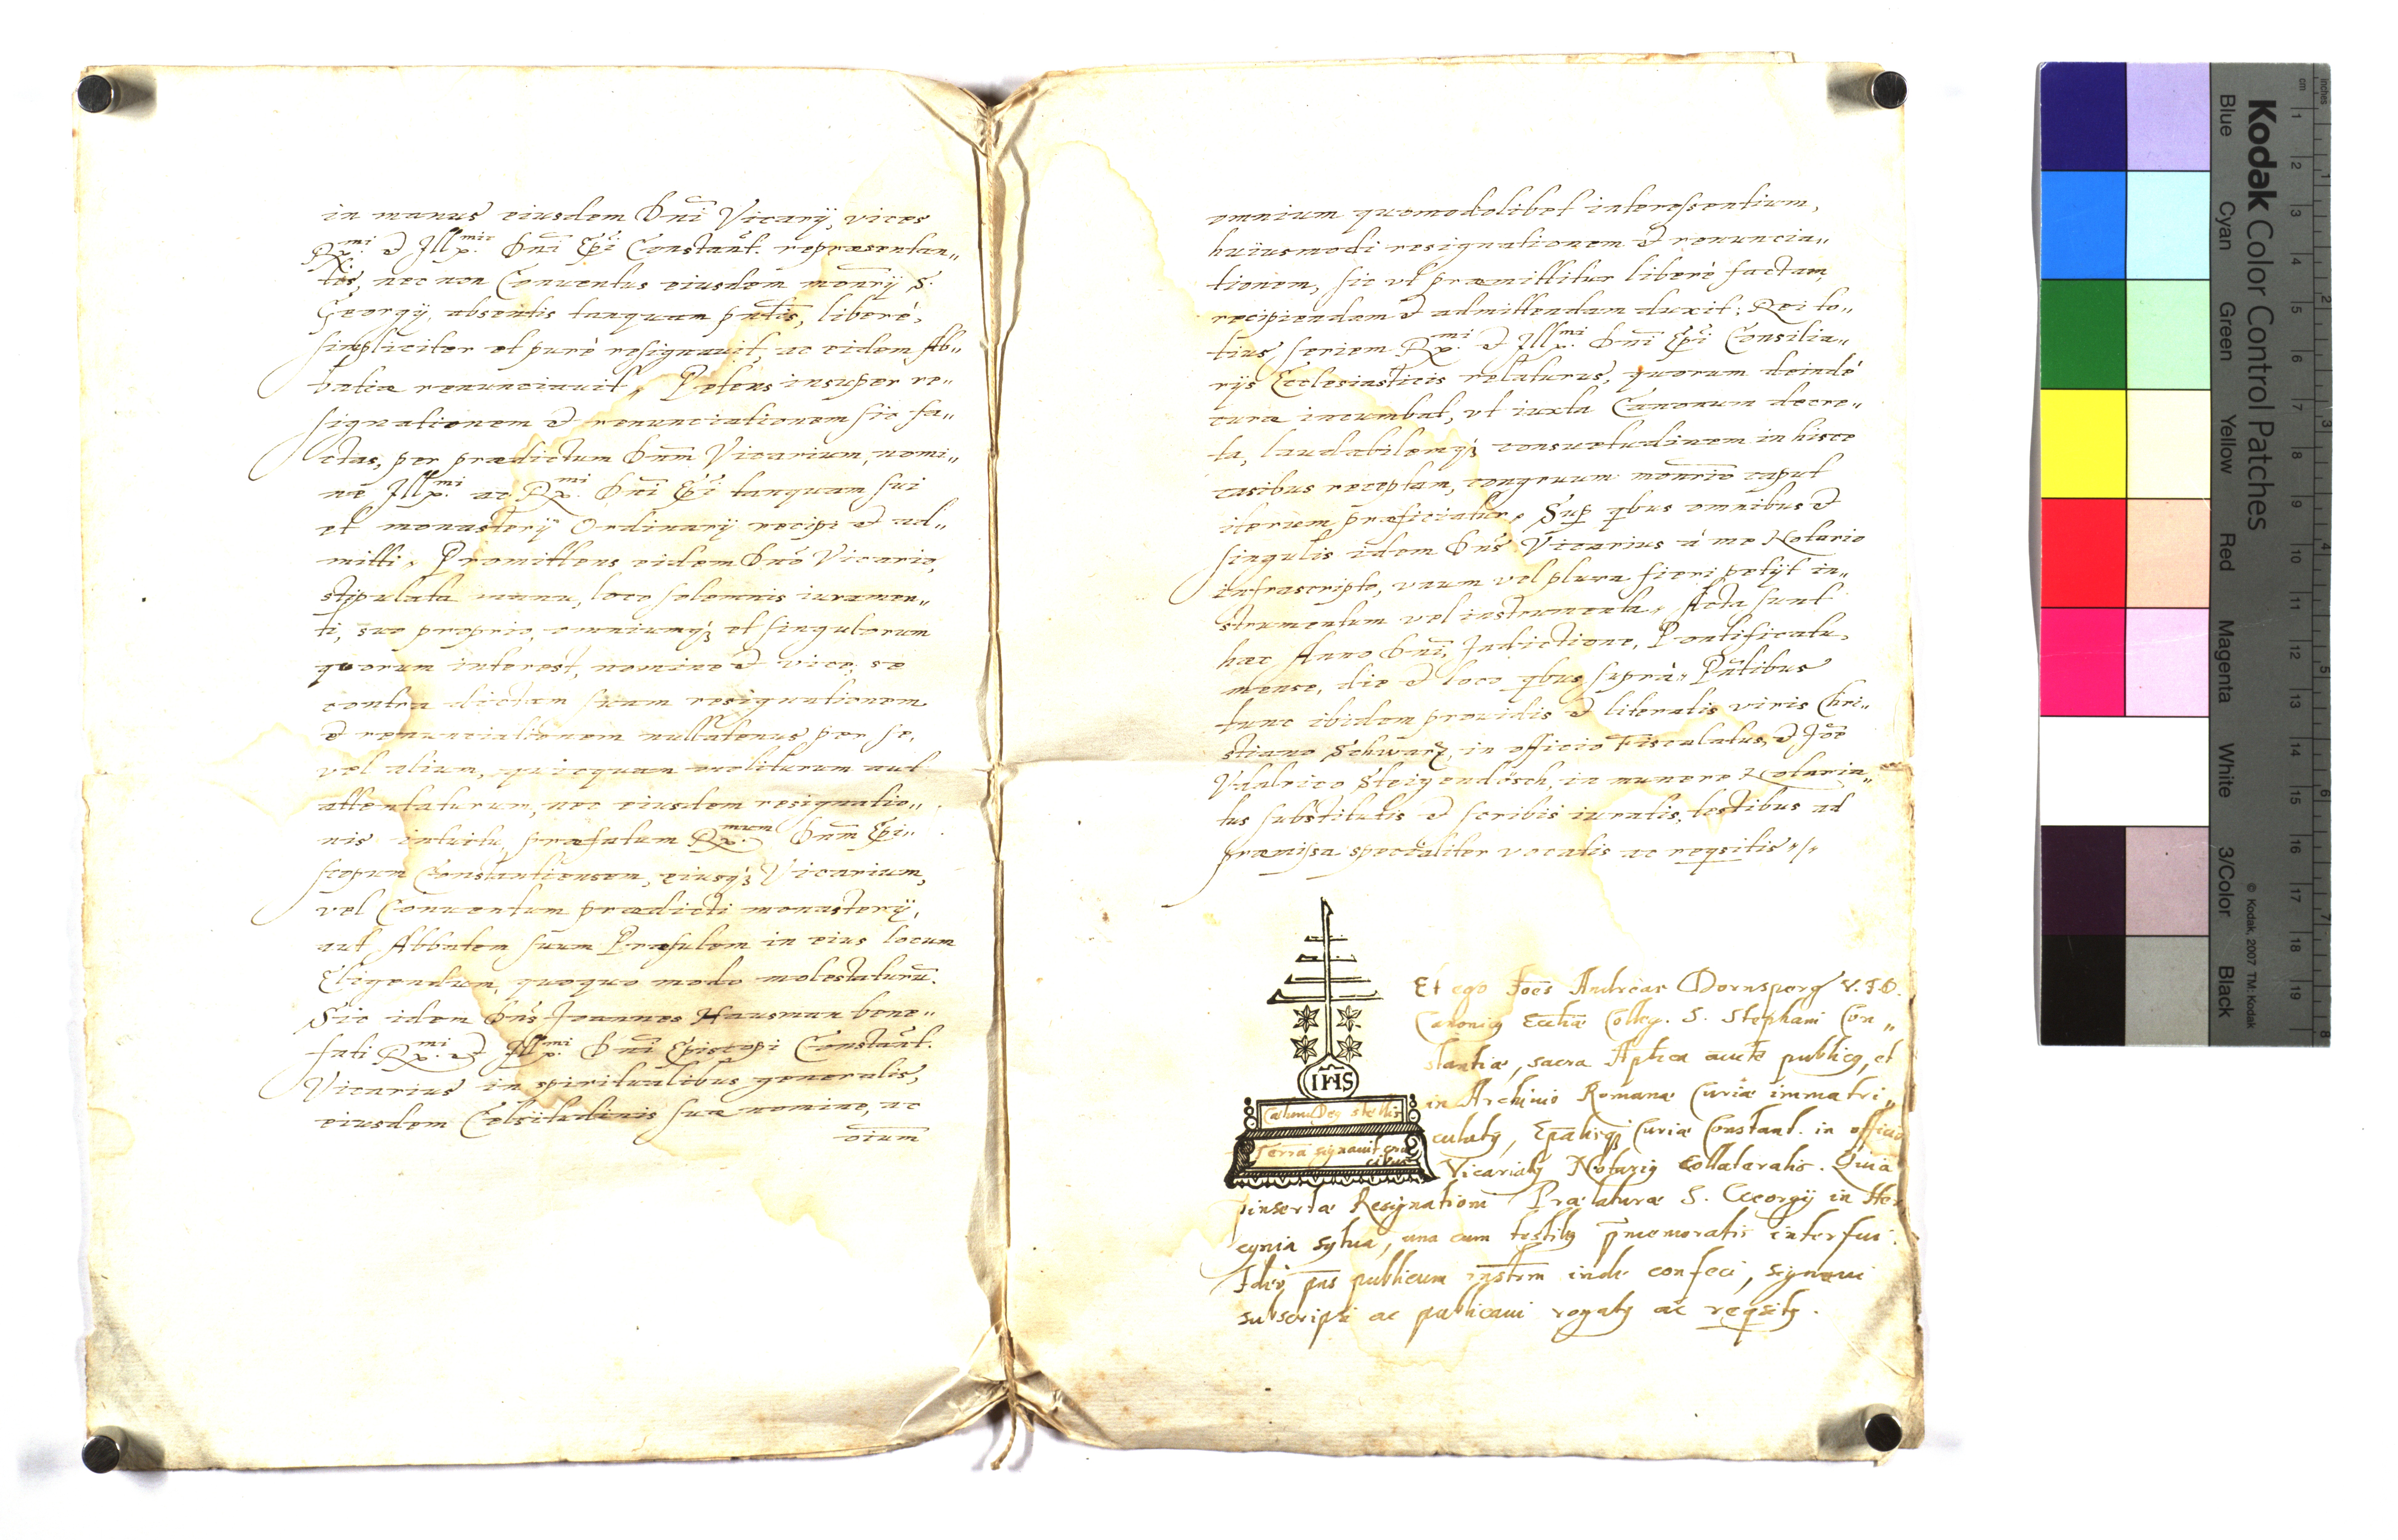 in manus eiusdem Dni Vicarij, vices
Rx.mi & Illx.mi Dni Epi Constant. repræsentan„
tes, nec non Conuentus eiusdem monrij S.
Georgij, absentis tanquam pntis, liberè,
simpliciter et purè resignauit, ac eidem Ab„
batiæ renunciauit, Petens insuper re„
signationem & renunciationem sic fa„
ctas, per prædictum Dnm Vicarium, nomi„
ne Illx.mi ac Rx.mi Dni Epi tanquam sui
et monasterij Ordinarij recipi & ad„
mitti, Promittens eidem Dno Vicario,
stipulata manu, loco solemnis iuramen„
ti, suo proprio, omniumq3 et singulorum
quorum interest, nomine & vice, se
contra dictam suam resignationem
& renunciationem nullatenus per se,
vel alium, quicquam moliturum aut
attentaturum, nec eiusdem resignatio„
nis intuitu, præfatum Rx.mum Dnm Epi„
scopum Constantiensem, eiusq3 Vicarium,
vel Conuentum prædicti monasterij,
aut Abbatem suum Præsulem in eius locum
Eligendum, quoquo modo molestaturũ.
Sic idem Dns Joannes Hausman bene„
fati Rx.mi & Illx.mi Dni Episcopi Constant.
Vicarius in spiritualibus generalis,
eiusdem Celsitudinis suæ nomine, ac
oium
omnium quomodolibet interessentium,
huiusmodi resignationem & renuncia„
tionem, sic vt præmittitur liberè factam,
recipiendam & admittendam duxit; Rei to„
tius seriem Rx.mi & Illx.mi Dni Epi Consilia„
rijs Ecclesiasticis relaturus, quorum deindè
cura incumbat, vt iuxta Canonum decre„
ta, laudabilemq3 consuetudinem in hisce
casibus receptam, congruum monrio caput
iterum præficiatur, Sup qbus omnibus &
singulis idem Dns Vicarius à me Notario
infrascripto, vnum vel plura fieri petijt in„
strumentum vel instrumenta, Acta sunt
hæc Anno Dni, Indictione, Pontificatu,
mense, die & loco qbus suprà, Pntibus
tunc ibidem prouidis & literatis viris Chri„
stiano Schwarz, in officio Fiscalatus, & Joe
Vdalrico Steigendösch, in munere Notaria„
tus substitutis & scribis iuratis, testibus ad
præmissa specialiter vocatis ac reqsitis
Et ego Joes Andreas Dornsperg V.J.D.
Canonicq Eccliæ Colleg. S. Stephani Con„
stantiæ, sacra Aptica aucte publicq, et
in Archiuio Romanæ Curiæ immatri„
culatq, Epalisq3 Curiæ Constant. in officio
Vicariatq Notariq Collateralis. Quia
pinsertæ Resignationi Prælaturæ S. Georgij in Her
cynia sylua, una cum testibq pmemoratis interfui.
Ideò pns publicum instrm inde confeci, signaui
subscripsi ac publicaui rogatq ac reqsitq.
IHS
Cælum Deq stellis
Terra signauit cru
cibus